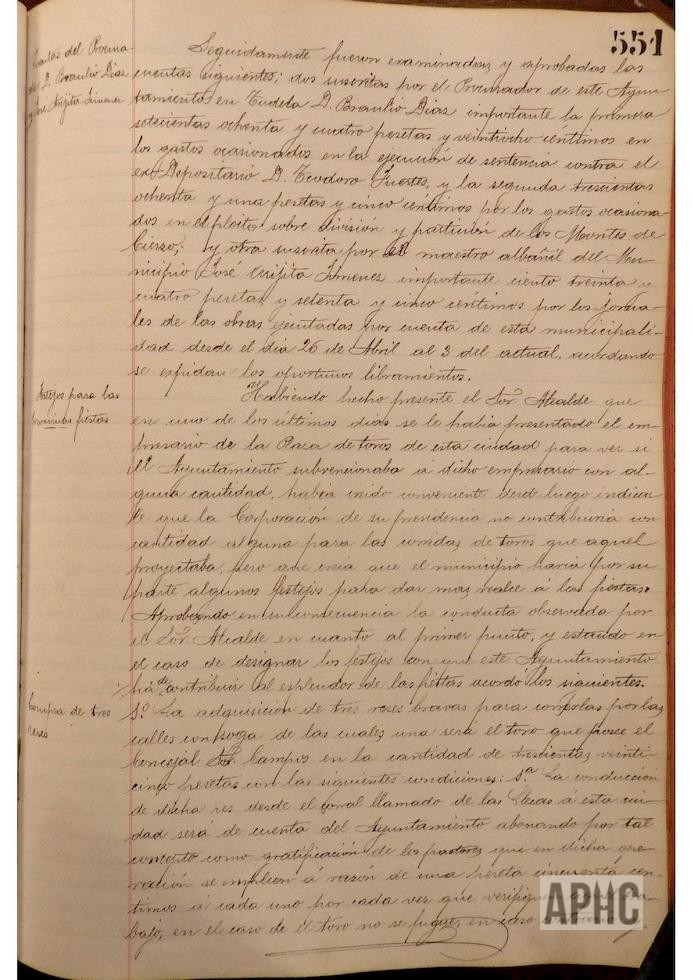 551
Cuentas del Procura-
dor D. Braulio Dias
y José Arijita Jimenes
Seguidamente fueron examinadas y aprobadas las
cuentas siguientes; dos suscritas por el Procurador de este Ayun-
tamiento en Tudela D. Braulio Dias importante la primera
setecientas ochenta y cuatro pesetas y veintiocho centimos en
los gastos ocasionados en la ejecución de sentencia contra el
ex-Depositario D. Teodoro Fuertes, y la segunda trescientas
ochenta y una pesetas y cinco centimos por los gastos ocasiona-
dos en el pleito sobre división y partición de los Montes de
Cierzo; y otra suscrita por el maestro albañil del Mu-
nicipio José Arijita Jimenes importante ciento treinta y
cuatro pesetas y setenta y cinco centimos por los jorna-
les de las obras ejecutadas por cuenta de esta municipali-
dad desde el dia 26 de Abril al 3 del actual, acordando
se expidan los oportunos libramientos.
Festejos para las
proximas fiestas
Habiendo hecho presente el Sor. Alcalde que
en uno de los últimos dias se le habia presentado el em-
presario de la Plaza de toros de esta ciudad para ver si
el Ayuntamiento subvencionaba á dicho empresario con al-
guna cantidad, habia creido conveniente desde luego indicar-
le que la Corporación de su presidencia no contribuiria con
cantidad alguna para las corridas de toros que aquel
proyectaba, pero que creia que el municipio haria por su
parte algunos festejos para dar mas realce á las fiestas.
Aprobando en su consecuencia la conducta observada por
el Sor. Alcalde en cuanto al primer punto, y estando en
el caso de designar los festejos con que este Ayuntamiento
ha de contribuir al esplendor de las fiestas acordó los siguientes.
Compra de tres
reses
1º La adquisición de tres reses bravas para correrlas por las
calles con soga de las cuales una será el toro que posee el
Concejal Sor. Campos en la cantidad de trescientas veinti-
cinco pesetas con las siguientes condiciones: 1ª La conducción
de dicha res desde el corral llamado de las Ilecas á esta ciu-
dad será de cuenta del Ayuntamiento abonando por tal
concepto como gratificación de los pastores que en dicha ope-
ración se empleen á razón de una peseta cincuenta cen-
timos á cada uno por cada vez que verifiquen
bajo, en el caso de el toro no se fugue, en caso
APHC